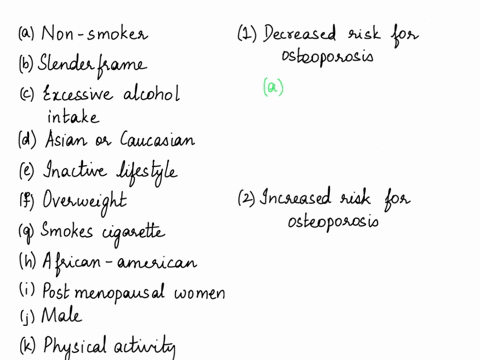 (a) Non-smoker
(b) Slender frame
(c) Excessive alcohol
intake
(d) Asian or Caucasian
(e) Inactive lifestyle
(f) Overweight
(g) Smokes cigarette
(h) African-american
(i) Post menopausal women
(j) Male
(k) Physical activity
(1) Decreased risk for
osteoporosis
(a)
(2) Increased risk for
osteoporosis